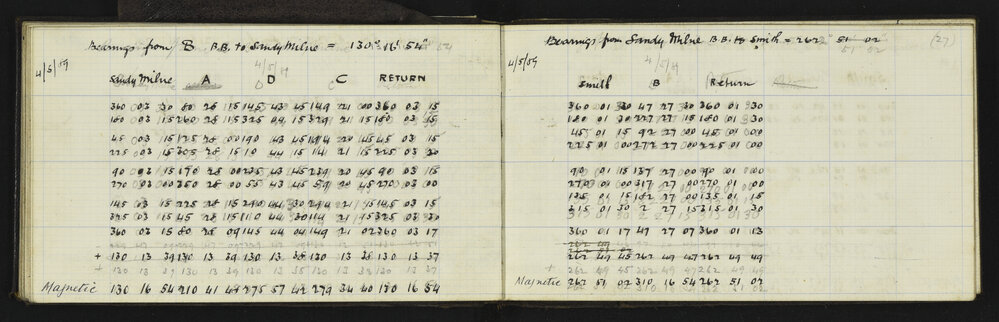 Bearings from B B.B. to Sandy Milne = 130° 16' 54"
4/5/09
Sandy Milne A D C RETURN
360 03 30 80 28 15 145 43 45 149 21 00 360 03 15
180 03 15 260 28 15 325 09 15 329 21 15 180 03 15
45 03 15 125 28 00 190 43 45 194 20 45 45 03 15
225 03 15 305 28 15 10 44 15 14 21 15 225 03 30
90 03 15 170 28 00 235 43 45 239 20 45 90 03 15
270 03 00 350 28 00 55 43 45 59 20 45 270 03 00
145 03 15 225 28 15 290 44 30 294 21 15 145 03 15
325 03 15 45 28 15 110 44 30 114 21 15 325 03 30
360 03 15 80 28 09 145 44 04 149 21 02 360 03 17
+ 130 13 39 130 13 39 130 13 38 130 13 38 130 13 37
Magnetic 130 16 54 210 41 48 275 57 42 279 34 40 130 16 54
Bearings from Sandy Milne B.B. to Smith = 262° 51' 02"
(27)
4/5/09
Smith B Return
360 01 30 47 27 30 360 01 30
180 01 30 227 27 15 180 01 30
45 01 15 92 27 00 45 01 00
225 01 00 272 27 00 225 01 00
90 01 15 137 27 00 90 01 00
270 01 00 317 27 00 270 01 00
135 01 15 182 27 00 135 01 15
315 01 30 2 27 15 315 01 30
360 01 17 47 27 07 360 01 13
262 49 45 262 49 47 262 49 49
Magnetic 262 51 02 310 16 54 262 51 02